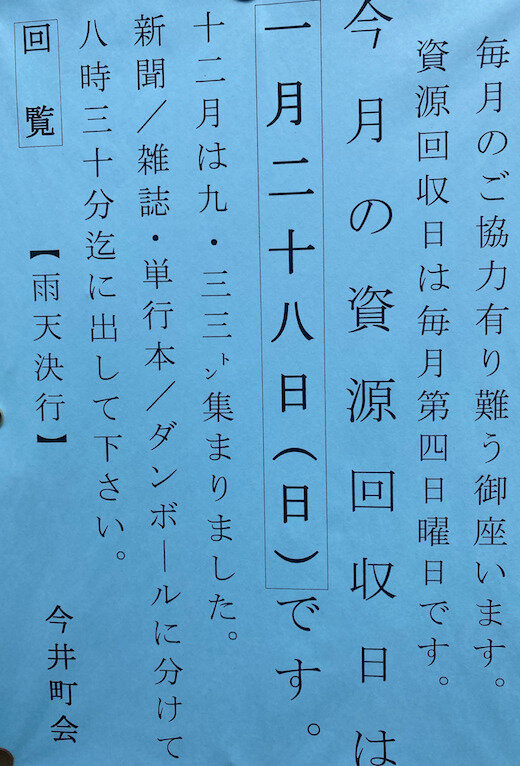 毎月のご協力有り難う御座います。
資源回収日は毎月第四日曜日です。
今月の資源回収日は
一月二十八日(日)です。
十二月は九・三三㌧集まりました。
新聞/雑誌・単行本/ダンボールに分けて
八時三十分迄に出して下さい。
回覧【雨天決行】
今井町会